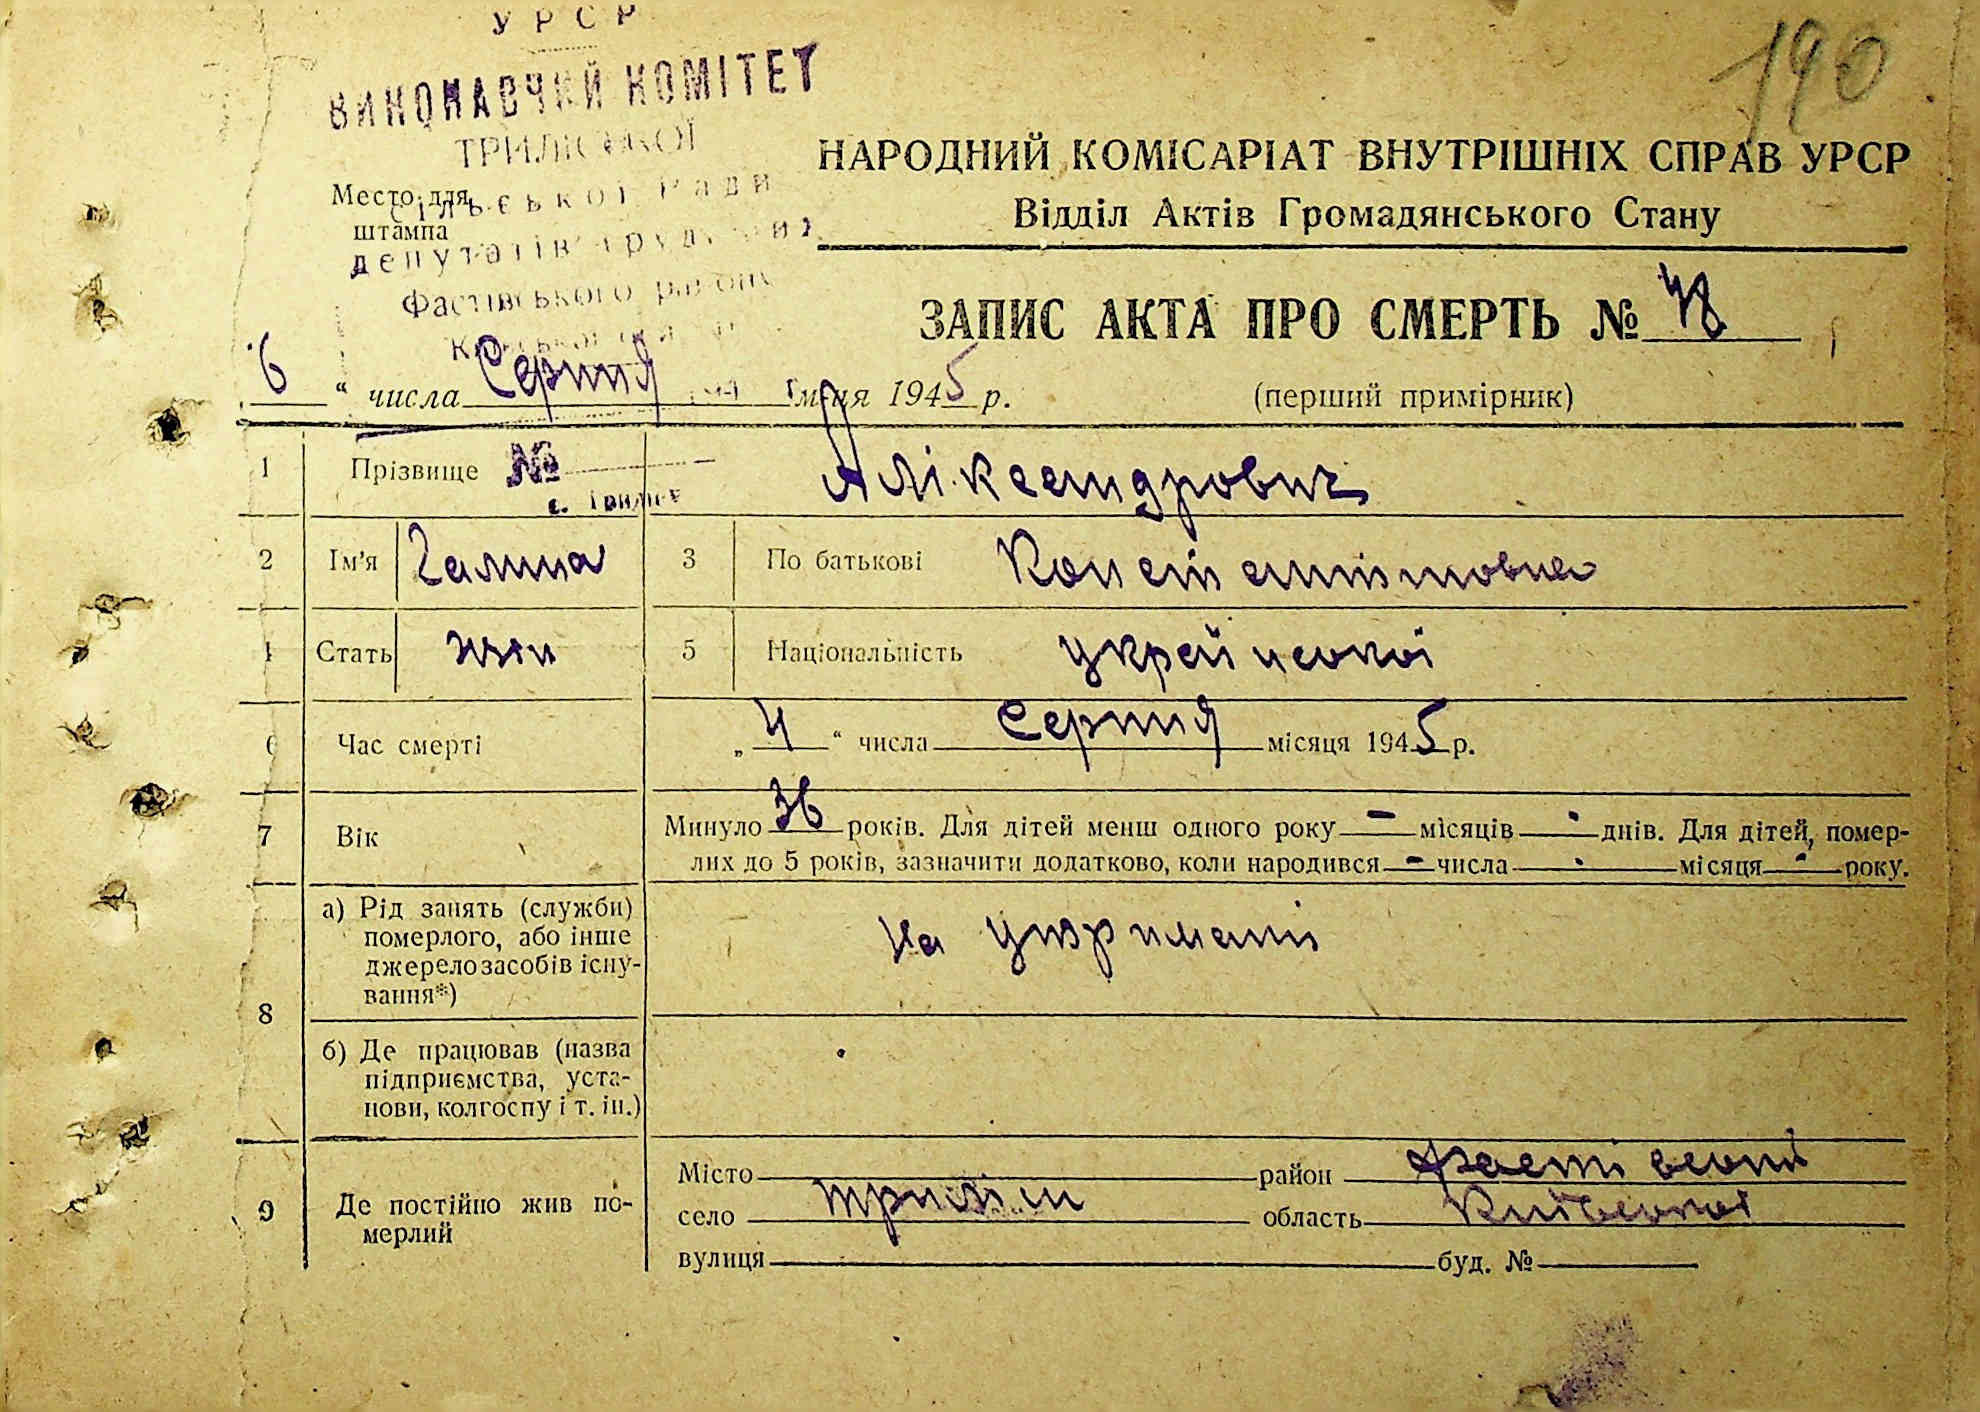 УРСР
190
ВИКОНАВЧИЙ КОМІТЕТ
ТРИЛІСЬКОЇ
НАРОДНИЙ КОМІСАРІАТ ВНУТРІШНІХ СПРАВ УРСР
Место для
сільської Ради
штампа
Відділ Актів Громадянського Стану
депутатів трудящих
Фастівського району
ЗАПИС АКТА ПРО СМЕРТЬ №
Київської
6 “ числа Серпня місяця 1945 р.
(перший примірник)
1 Прізвище № Аліксандрович
с. Триліси
2 Ім'я Галина 3 По батькові Констянтіновна
4 Стать жін 5 Національність украйнської
6 Час смерті „ 4 “ числа Серпня місяця 1945 р.
7 Вік Минуло 36 років. Для дітей менш одного року - місяців - днів. Для дітей, помер-
лих до 5 років, зазначити додатково, коли народився - числа - місяця - року.
8 а) Рід занять (служби) померлого, або інше джерело засобів існу-вання*) На утриманні
б) Де працював (назва підприємства, уста-нови, колгоспу і т. ін.)
9 Де постійно жив по-мерлий
Місто район Фастівській
село Триліси область Київської
вулиця буд. №